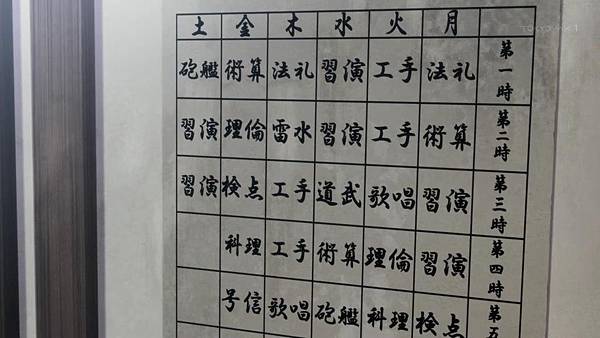 TOKYO MX1
月 火 水 木 金 土
第一時 礼法 手工 演習 礼法 算術 艦砲
第二時 算術 手工 演習 水雷 倫理 演習
第三時 演習 唱歌 武道 手工 点検 演習
第四時 演習 倫理 算術 手工 理科
第五 点検 理科 艦砲 唱歌 信号